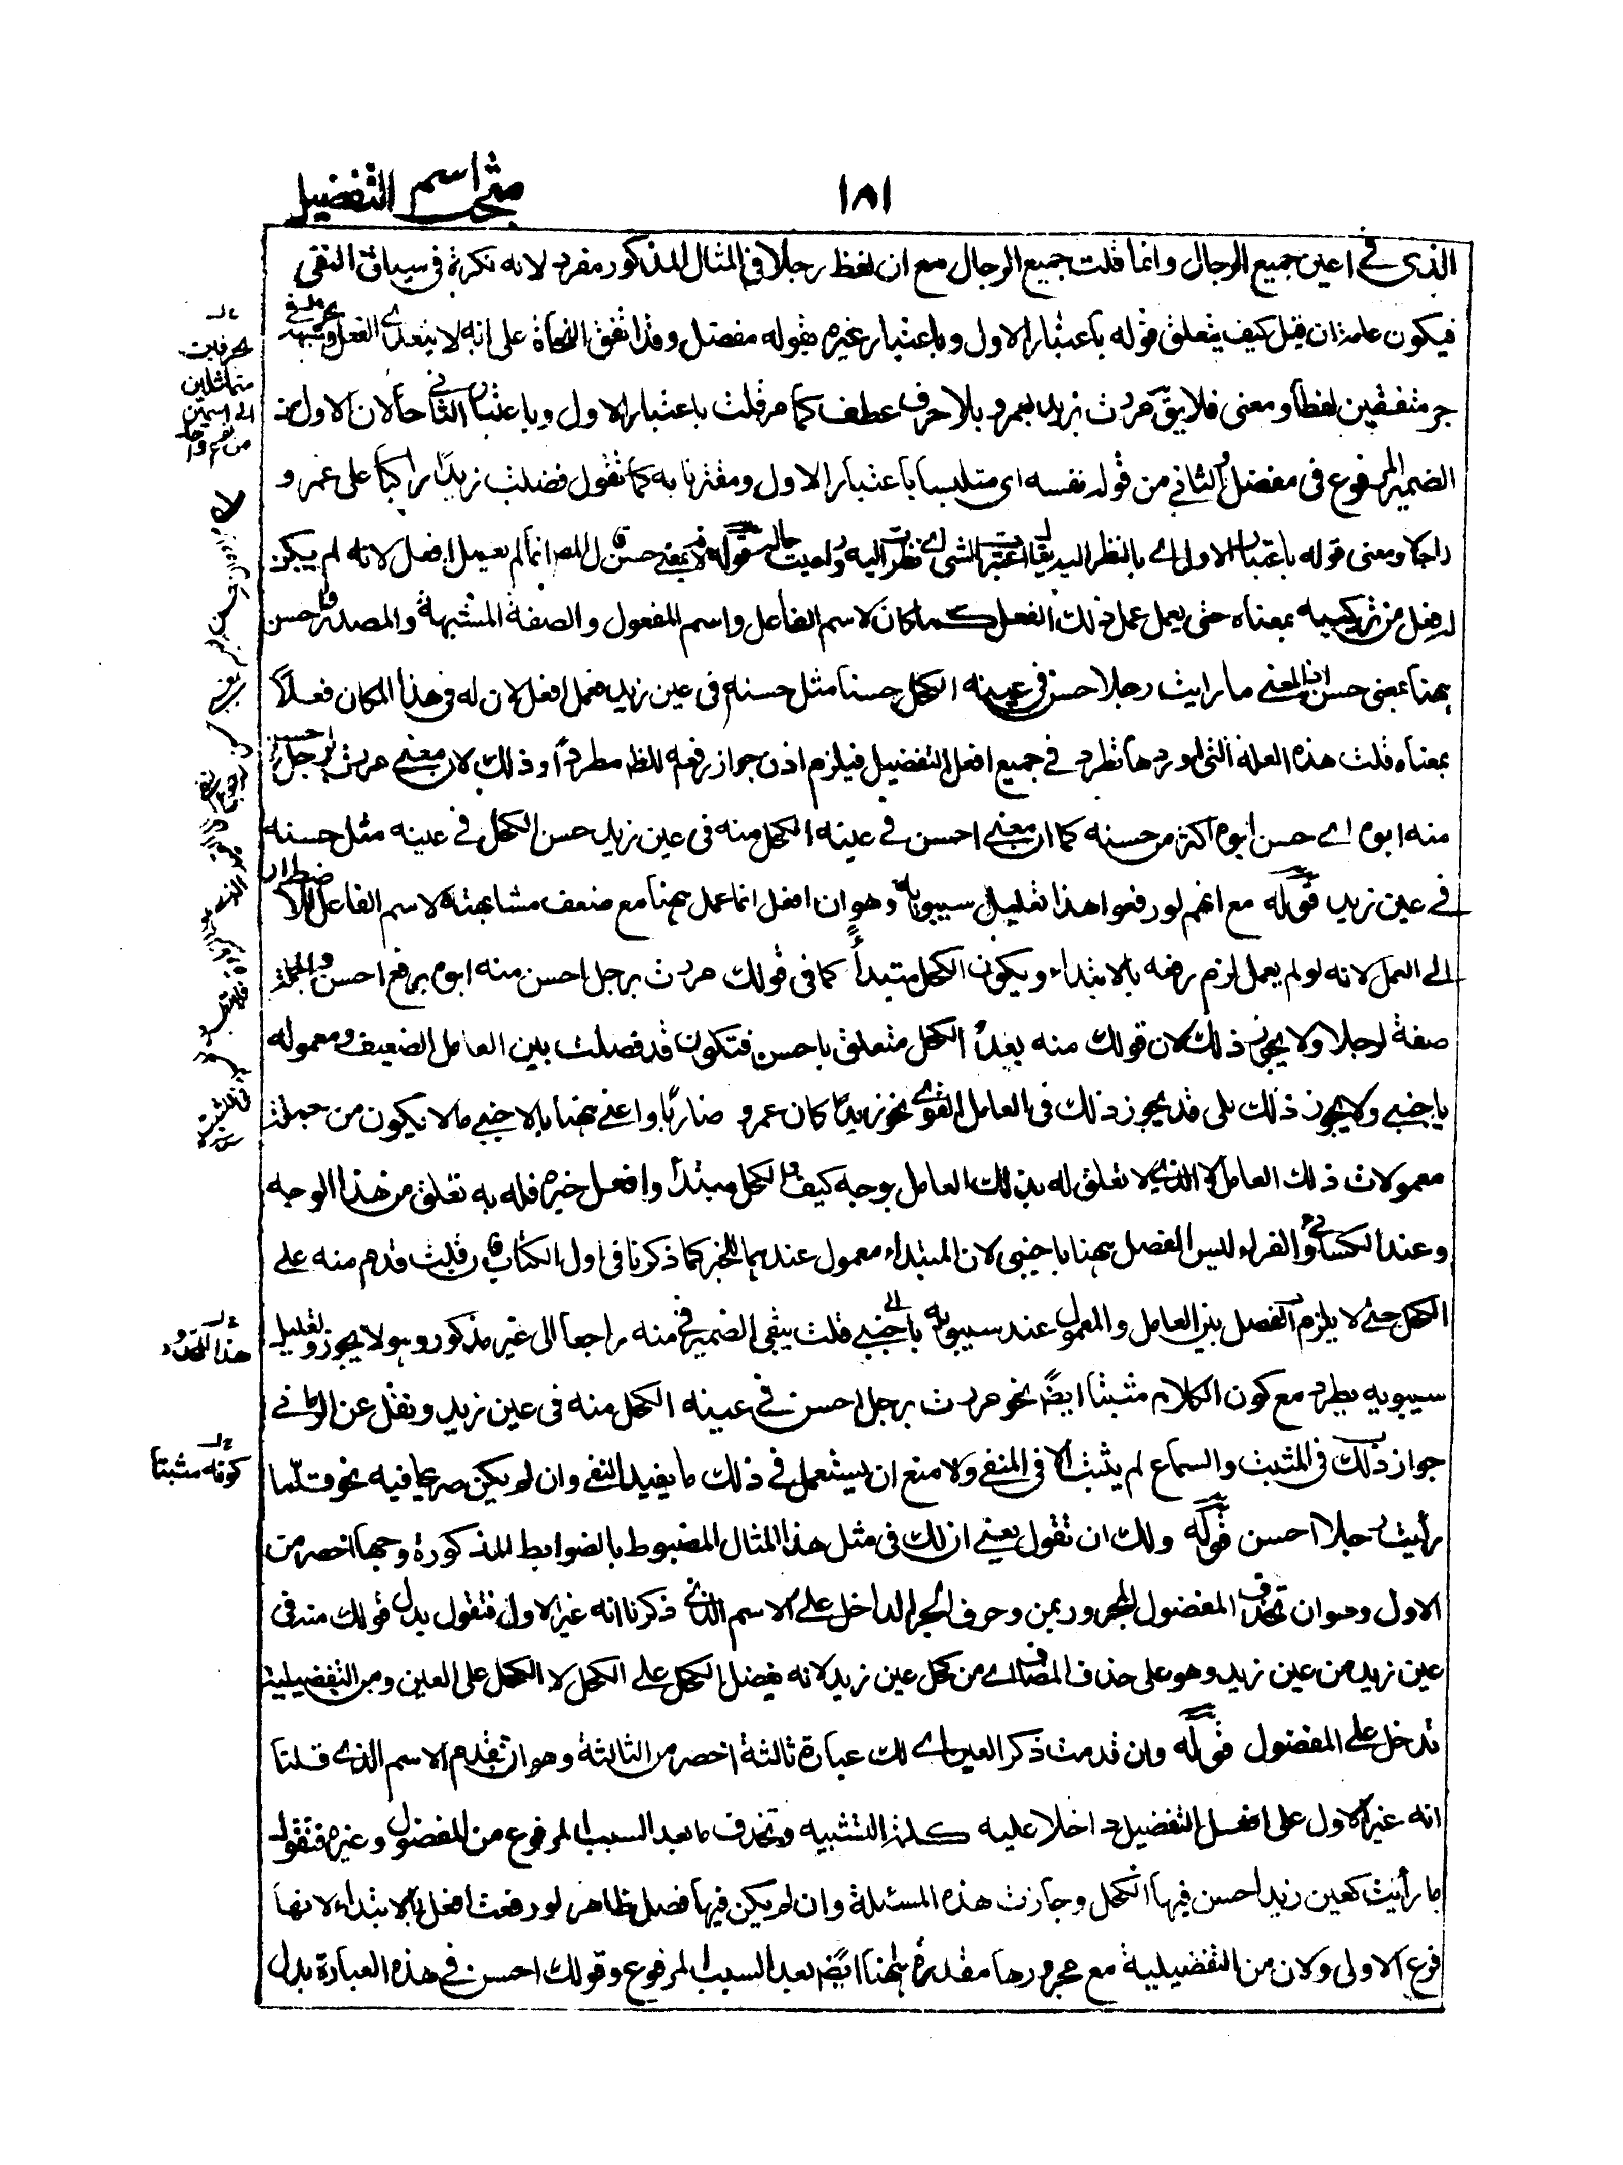 ١٨١
مبحث اسم التفضيل
الذى فى اعين جميع الرجال وانما قلت جميع الرجال مع ان لفظ رجلا فى المثال المذكور مفرد لانه نكرة فى سياق النفى
فيكون عامة ان قيل كيف يتعلق قوله باعتبار الاول وباعتبار غيره بقوله مفضل وقد اتفق النحاة على انه لا يتعدى الفعل وشبهه بحرفى
جر متفقين لفظا ومعنى فلا يق مررت بزيد بعمرو بلا حرف عطف كما مر قلت باعتبار الاول وباعتبار الثانى حالان الاول من
الضمير المرفوع فى مفضل والثانى من قوله نفسه اى متلبسا باعتبار الاول ومقترنا به كما تقول فضلت زيدا راكبا على عمرو
راجلا ومعنى قوله باعتبار الاول اى بالنظر اليه يقال اعتبرت الشى اى نظرت اليه وراعيت حاله قوله لانه بمعنى حسن قال المص انما لم يعمل افعل لانه لم يكن
له فعل من تركيبه بمعناه حتى يعمل عمل ذلك الفعل كما كان لاسم الفاعل واسم المفعول والصفة المشبهة والمصدر واحسن
ههنا بمعنى حسن اذ المعنى ما رايت رجلا حسن فى عينه الكحل حسنا مثل حسنه فى عين زيد فعمل افعل لان له فى هذا المكان فعلا
بمعناه قلت هذه العلة التى اوردها تطرد فى جميع افعل التفضيل فيلزم اذن جواز رفعه للظ مطردا وذلك لان معنى مررت برجل احسن
منه ابوه اى حسن ابوه اكثر من حسنه كما ان معنى احسن فى عينه الكحل منه فى عين زيد حسن الكحل فى عينه مثل حسنه
فى عين زيد قوله مع انهم لو رفعوا هذا تعليل سيبويه وهو ان افعل انما عمل ههنا مع ضعف مشابهته لاسم الفاعل للاضطرار
الى العمل لانه لو لم يعمل لزم رفعه بالابتداء ويكون الكحل مبتدأ كما فى قولك مررت برجل احسن منه ابوه برفع احسن والجملة
صفة لرجلا ولا يجوز ذلك لان قولك منه بعد الكحل متعلق باحسن فتكون قد فصلت بين العامل الضعيف ومعموله
باجنبى ولا يجوز ذلك بلى قد يجوز ذلك فى العامل القوى نحو زيدا كان عمرو ضاربا واعنى ههنا بالاجنبى ما لا يكون من جملة
معمولات ذلك العامل لا الذى لا تعلق له بذلك العامل بوجه كيف والكحل مبتدأ وافعل خبره فله به تعلق من هذا الوجه
وعند الكسائى والفراء ليس الفصل ههنا باجنبى لان المبتداء معمول عندهما للخبر كما ذكرنا فى اول الكتاب فان قلت قدم منه على
الكحل حتى لا يلزم الفصل بين العامل والمعمول عند سيبويه باجنبى قلت يبقى الضمير فى منه راجعا الى غير مذكور وهو لا يجوز وتعليل
سيبويه يطرد مع كون الكلام مثبتا ايضً نحو مررت برجل احسن فى عينه الكحل منه فى عين زيد ونقل عن الرمانى
جواز ذلك فى المثبت والسماع لم يثبت الا فى المنفى ولا منع ان يستعمل فى ذلك ما يفيد النفى وان لم يكن صريحا فيه نحو قلما
رأيت رجلا احسن قوله ولك ان تقول يعنى ان لك فى مثل هذا المثال المضبوط بالضوابط المذكورة وجها اخصر من
الاول وهو ان تحذف المفضول المجرور بمن وحرف الجر الداخل على الاسم الذى ذكرنا انه غير الاول فتقول بدل قولك منه فى
عين زيد من عين زيد وهو على حذف المضاف اى من كحل عين زيد لانه يفضل الكحل على الكحل لا الكحل على العين ومن التفضيلية
تدخل على المفضول قوله وان قدمت ذكر العين اى لك عبارة ثالثة اخصر من الثالثة وهو ان تقدم الاسم الذى قلنا
انه غير الاول على افعل التفضيل داخلا عليه كلمة التشبيه وتحذف ما بعد السبب المرفوع من المفضول وغيره فتقول
ما رأيت كعين زيد احسن فيها الكحل وجازت هذه المسئلة وان لم يكن فيها فصل ظاهر لو رفعت افعل بالابتداء لانها
فرع الاولى ولان من التفضيلية مع مجرورها مقدرة ههنا ايضً بعد السبب المرفوع وقولك احسن فى هذه العبارة بدل
بحرف جر
متماثلين
الى اسمين
من نوع واحد
هذا المحذور
كونه مثبتا